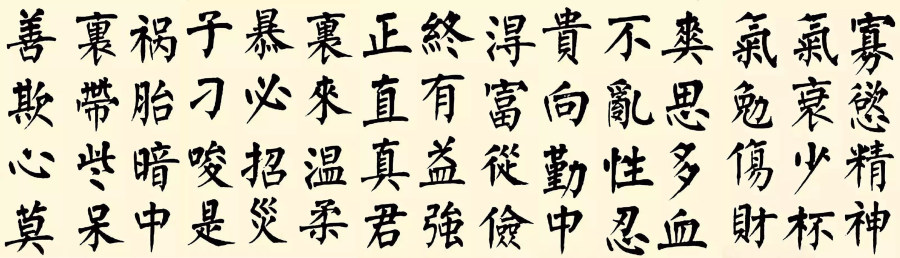 寡慾精神
氣衰少杯
氣勉傷財
爽思多血
不亂性忍
貴向勤中
淂富從儉
終有益強
正直真君
裏來温柔
暴必招災
子刁唆是
祸胎暗中
裏帶些呆
善欺心莫